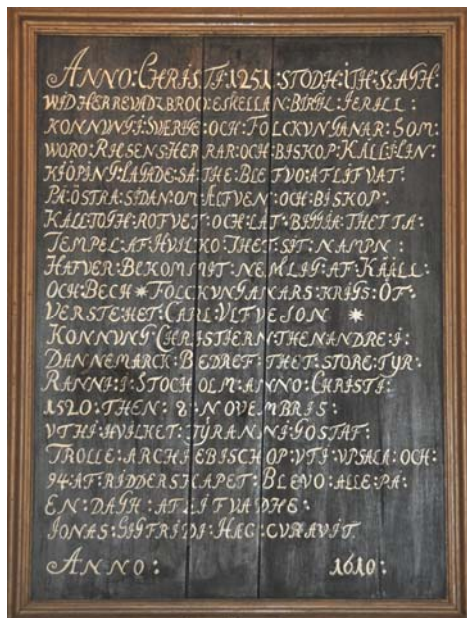 ANNO: CHRISTI: 1251: STODH: ITH: SLAGH:
WID HERREVADZBROO: EMELLAN: BIRIE IERILL:
KONNUNG I: SVERIGE: OCH: FOLCKVNGANAR: SOM:
WORO: RIKSENS HERRAR: OCH: BISKOP: KÄLL I: LIN:
KIÖPING: LAGADE: SÅ: THE: BLEFVO: AT LIF VAT:
PÅ: ÖSTRA: SIDAN: OM: ÄLFVEN: OCH: BISKOP:
KÄLL: TOGH: ROFVET: OCH: LÄT: BIGGIA: THETTA:
TEMPEL: AF: HVILKO: THET: SIT: NAMPN:
HAFVER: BEKOMMIT: NEMLIG: AF: KÄÄLL:
OCH: BECH * FOLCKVNGANARS: KRIGS: ÖF:
VERSTE: HET: CARL: VLFVESON *
KONNVNG: CHRISTIERN: THEN ANDRE: I:
DANNEMARCK: BEDREF: THET: STORE: TYR:
RANNI: I: STOCHOLM: ANNO: CHRISTI:
1520: THEN: 8: NOVEMBRIS:
VTHI: HVILKET: TYRANNI: GOSTAF:
TROLLE: ARCHIEBISCHOP: VTI: VPSALA: OCH:
94: AF: RIDDERSKAPET: BLEVO: ALLE: PÅ:
EN: DAGH: AF LIFVADHE:
IONAS: SIGFRIDI: HAC: CVRAVIT
ANNO: 1610: